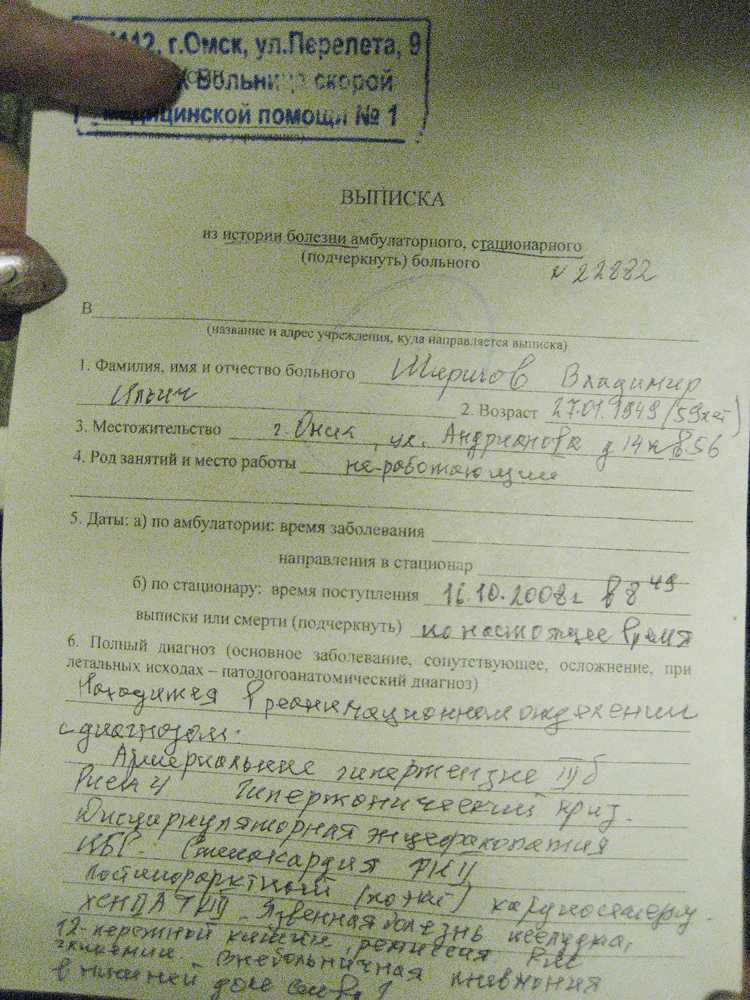 112, г.Омск, ул.Перелета, 9
Больница скорой
медицинской помощи № 1
ВЫПИСКА
из истории болезни амбулаторного, стационарного
(подчеркнуть) больного
N 22882
В
(название и адрес учреждения, куда направляется выписка)
1. Фамилия, имя и отчество больного Владимир
Ильич 2. Возраст 27.01.1949 (59 лет)
3. Местожительство г. Омск, ул. Андрианова д 14 56
4. Род занятий и место работы неработающий
5. Даты: а) по амбулатории: время заболевания
направления в стационар
б) по стационару: время поступления 16.10.2008г в 8 49
выписки или смерти (подчеркнуть) по настоящее время
6. Полный диагноз (основное заболевание, сопутствующее, осложнение, при
летальных исходах – патологоанатомический диагноз)
Находится в реанимационном отделении
с диагнозом:
Артериальная гипертензия III б
Риск 4 Гипертонический криз.
Дисциркуляторная энцефалопатия
ИБС. Стенокардия ФК II
Постинфарктный кардиосклероз.
ХСН II А ФК III. Язвенная болезнь желудка,
12-перстной кишки, ремиссия
Внебольничная пневмония
в нижней доле слева